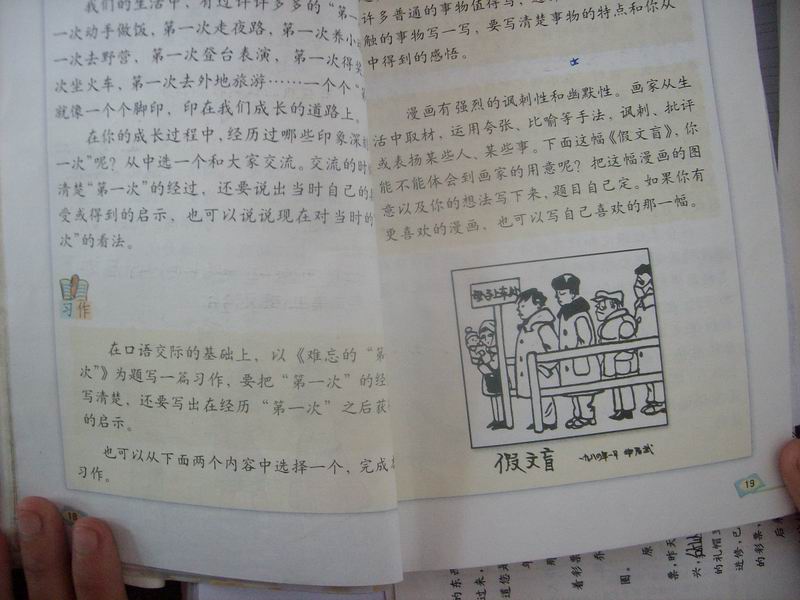 我们的生活中，有过许许多多的“第
一次动手做饭，第一次走夜路，第一次养小
一次去野营，第一次登台表演，第一次得奖
次坐火车，第一次去外地旅游……一个个“
就像一个个脚印，印在我们成长的道路上。
在你的成长过程中，经历过哪些印象深
一次”呢？从中选一个和大家交流。交流的时
清楚“第一次”的经过，还要说出当时自己的
受或得到的启示，也可以说说现在对当时的
次”的看法。
习作
在口语交际的基础上，以《难忘的“第
次”》为题写一篇习作，要把“第一次”的经
写清楚，还要写出在经历“第一次”之后获
的启示。
也可以从下面两个内容中选择一个，完成
习作。
18
许多普通的事物值得写，
触的事物写一写，要写清楚事物的特点和你从
中得到的感悟。
漫画有强烈的讽刺性和幽默性。画家从生
活中取材，运用夸张、比喻等手法，讽刺、批评
或表扬某些人、某些事。下面这幅《假文盲》，你
能不能体会到画家的用意呢？把这幅漫画的图
意以及你的想法写下来，题目自己定。如果你有
更喜欢的漫画，也可以写自己喜欢的那一幅。
母子上车处
假文盲
19